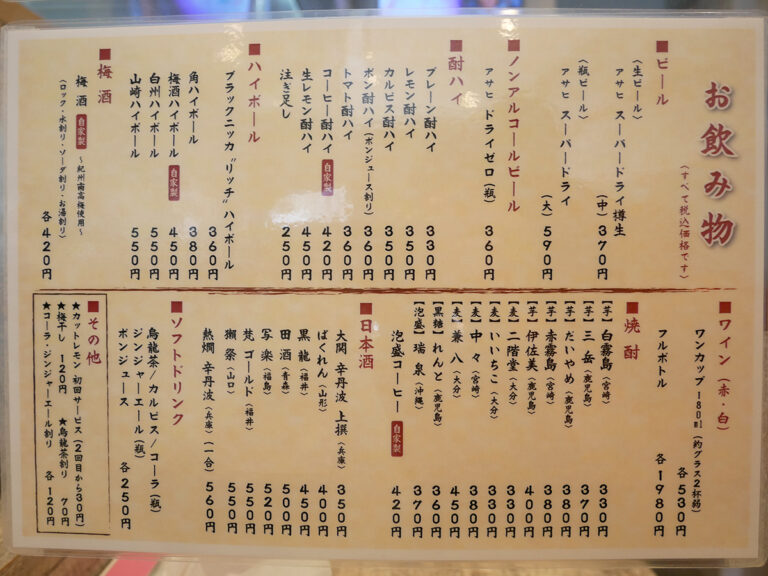 お飲み物
(すべて税込価格です)
■ビール
(生ビール)
アサヒ スーパードライ樽生
(中) 370円
(瓶ビール)
アサヒ スーパードライ
(大) 590円
■ノンアルコールビール
アサヒ ドライゼロ(瓶) 360円
■酎ハイ
プレーン酎ハイ 330円
レモン酎ハイ 350円
カルピス酎ハイ 350円
ポン酎ハイ(ポンジュース割り) 360円
トマト酎ハイ 360円
コーヒー酎ハイ 自家製 420円
生レモン酎ハイ 450円
注ぎ足し 250円
■ハイボール
ブラックニッカ"リッチ"ハイボール 360円
角ハイボール 380円
梅酒ハイボール 自家製 450円
白州ハイボール 550円
山崎ハイボール 550円
■梅酒
梅酒 自家製 ~紀州南高梅使用~
(ロック・水割り・ソーダ割り・お湯割り)
各420円
■ワイン(赤・白)
ワンカップ 180ml(約グラス2杯弱)
各530円
フルボトル 各1980円
■焼酎
【芋】白霧島(宮崎) 330円
【芋】三岳(鹿児島) 370円
【芋】だいやめ(鹿児島) 380円
【芋】赤霧島(宮崎) 380円
【芋】伊佐美(鹿児島) 400円
【麦】二階堂(大分) 330円
【麦】いいちこ(大分) 330円
【麦】中々(宮崎) 380円
【麦】兼八(大分) 450円
【黒糖】れんと(鹿児島) 360円
【泡盛】瑞泉(沖縄) 370円
泡盛コーヒー 自家製 420円
■日本酒
大関 辛丹波 上撰(兵庫) 350円
ばくれん(山形) 400円
黒龍(福井) 450円
田酒(青森) 500円
写楽(福島) 520円
梵ゴールド(福井) 550円
獺祭(山口) 550円
熱燗 辛丹波(兵庫)(一合) 560円
■ソフトドリンク
烏龍茶/カルピス/コーラ(瓶)
ジンジャーエール(瓶)
ポンジュース 各250円
■その他
★カットレモン 初回サービス(2回目から30円)
★梅干し 120円 ★烏龍茶割り 70円
★コーラ・ジンジャーエール割り 各120円